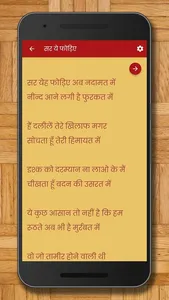 सर ये फोड़िए
सर येह फोड़िए अब नदामत में
नीन्द आने लगी है फुरकत में
हैं दलीलें तेरे ख़िलाफ मगर
सोचता हूँ तेरी हिमायत में
इश्क को दरम्यान ना लाओ के मैं
चीखता हूँ बदन की उसरत में
ये कुछ आसान तो नहीं है कि हम
रूठते अब भी है मुर्रबत में
वो जो तामीर होने वाली थी